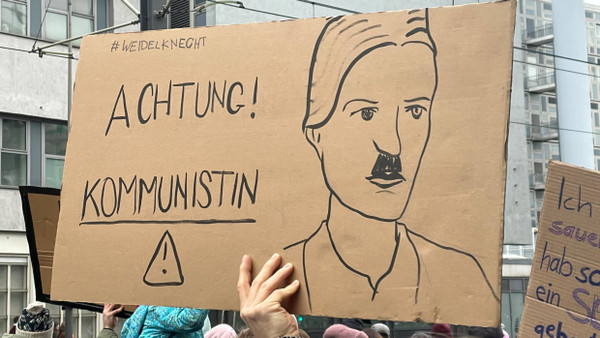 #WEIDELKNECHT
ACHTUNG!
KOMMUNISTIN
!
Ich
sauer
hab so
ein